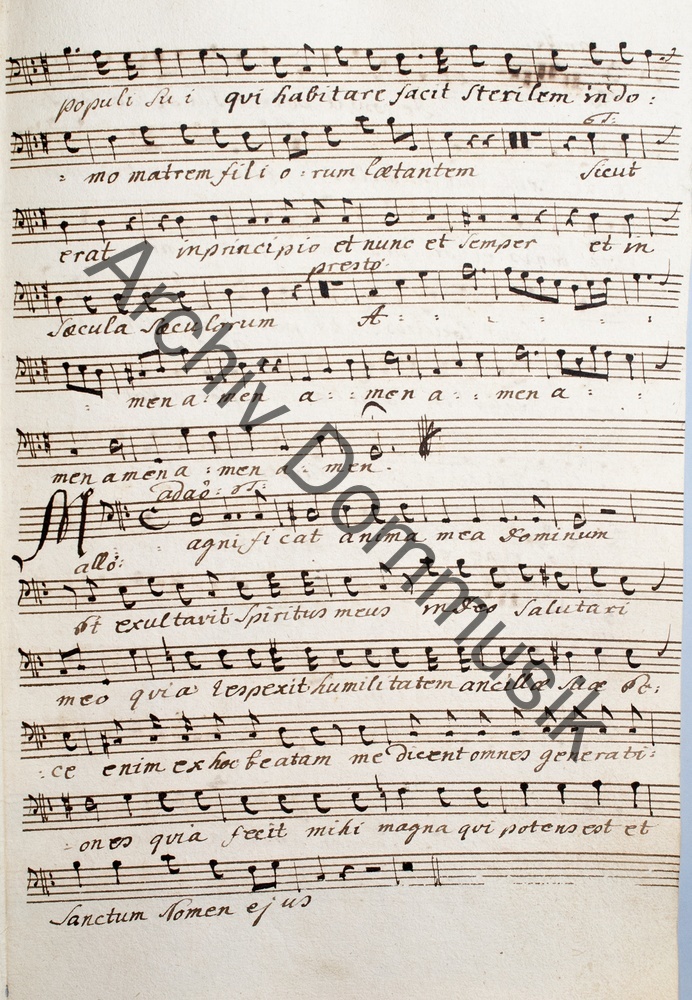 populi su i qui habitare facit sterilem in do :
: mo matrem fili o : rum lætantem sicut
erat in principio et nunc et semper et in
presto
sæcula sæculorum A - : - : - :
: men a : men a : : men a : : men a : :
men amen a : men a : men.
adaō:
Magnificat anima mea Dominum
allō:
et exultavit Spiritus meus in deo salutari
meo quia respexit humilitatem ancillæ suæ ec:
: ce enim ex hoc beatam me dicent omnes generati :
: ones quia fecit mihi magna qui potens est et
Sanctum Nomen ejus
Archiv Dommusik